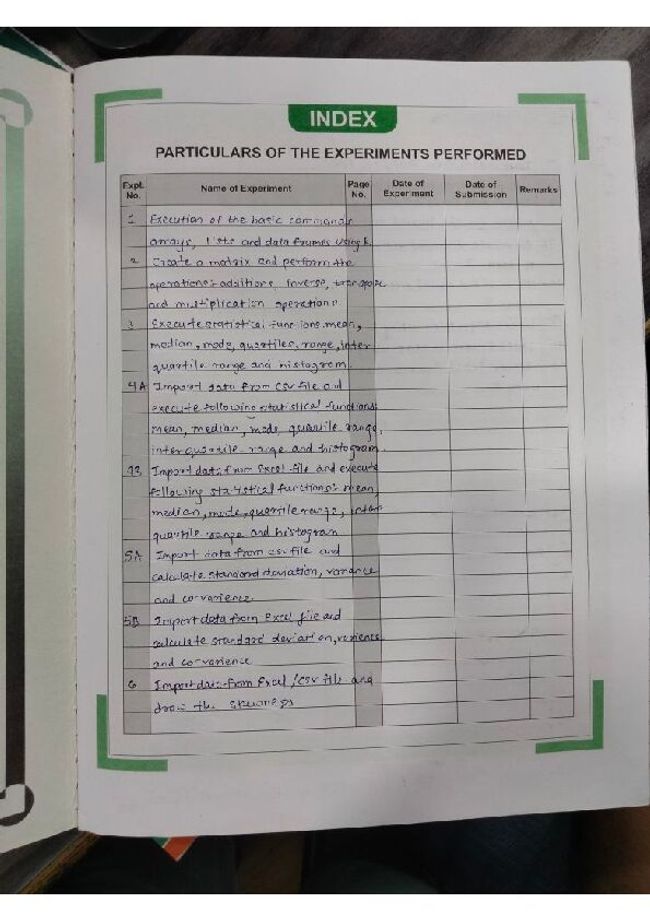 INDEX
PARTICULARS OF THE EXPERIMENTS PERFORMED
Expt. No. Name of Experiment Page No. Date of Experiment Date of Submission Remarks
1 Execution of the basic commands
arrays, lists and data frames using R
2 Create a matrix and perform the
operations:- additions, inverse, transpose
and multiplication operations
3 Execute statistical functions mean,
median, mode, quartiles, range, inter
quartile range and histogram
4A Import data from CSV file and
execute following statistical functions
mean, median, mode, quartile range,
inter quartile range and histogram.
Import data from Excel file and execute
following statistical functions mean,
median, mode, quartile range, inter
quartile range and histogram
5A Import data from csv file and
calculate standard deviation, variance
and co-varience.
5B Import data from Excel file and
calculate standard deviation, varience
and co-varience
6 Import data from Excel /CSV file and
draw the skewness